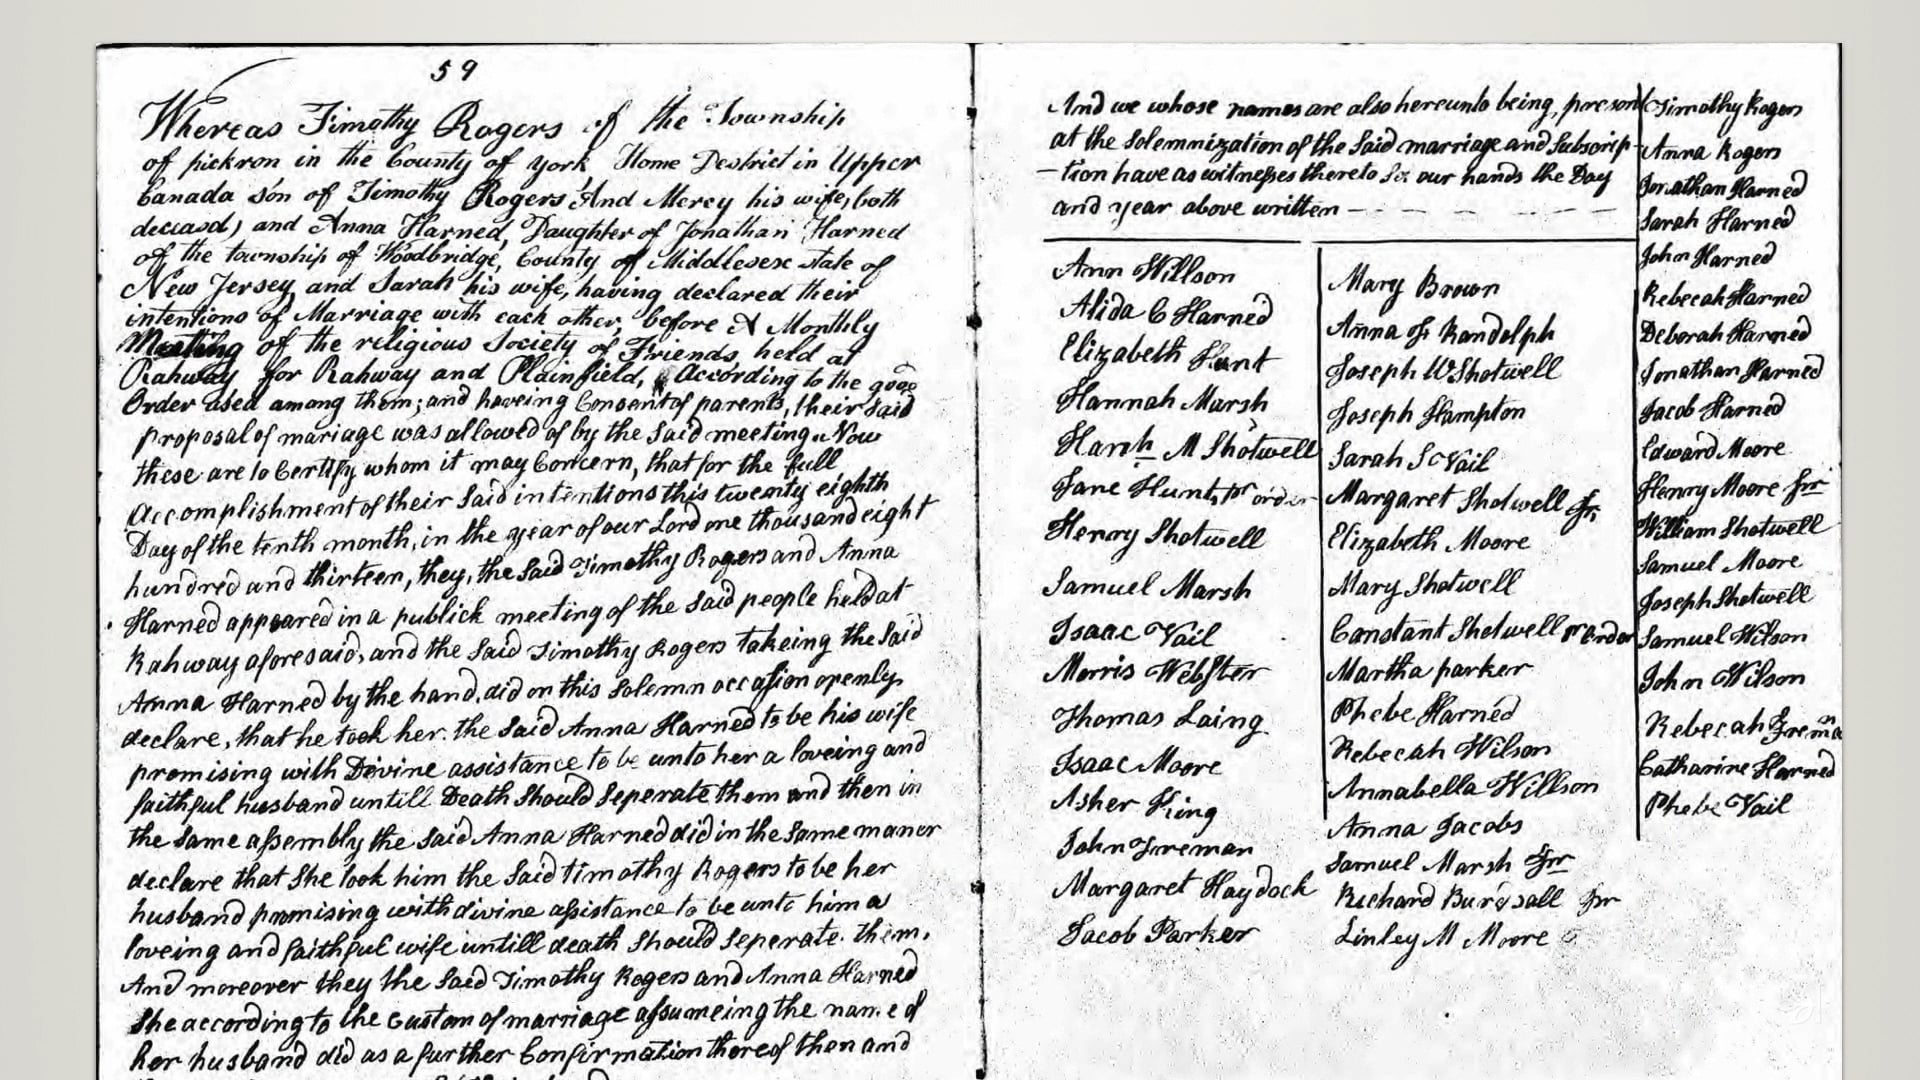 59
Whereas Timothy Rogers of the Township
of pickron in the County of york, Home Destrict in Upper
Canada son of Timothy Rogers And Mercy his wife, (both
deceasd) and Anna Harned, Daughter of Jonathan Harned
of the township of Woodbridge, County of Middlesex state of
New Jersey, and Sarah his wife, having declared their
intentions of Marriage with each other, before A Monthly
Meeting of the religious Society of Friends, held at
Rahway for Rahway and Plainfield, According to the good
Order used among them; and haveing Consent of parents, their said
proposal of mariage was allowed of by the said meeting. Now
these are to Certify whom it may Concern, that for the full
Accomplishment of their said intentions this twenty eighth
Day of the tenth month, in the year of our Lord one thousand eight
hundred and thirteen, they, the said Timothy Rogers and Anna
Harned appeared in a publick meeting of the said people held at
Rahway aforesaid, and the said Timothy Rogers takeing the said
Anna Harned by the hand, did on this solemn occasion openly
declare, that he took her. the said Anna Harned to be his wife
promising with Devine assistance to be unto her a loveing and
faithful husband untill Death should seperate them and then in
the same assembly the said Anna Harned did in the same maner
declare that she took him the said timothy Rogers to be her
husband promising with divine assistance to be unto him a
loveing and faithful wife untill death should seperate them.
And moreover they the said Timothy Rogers and Anna Harned
she according to the custom of marriage assumeing the name of
her husband did as a further Confirmation thereof then and
And we whose names are also hereunto being, present
at the solemnization of the said marriage and subscrip-
-tion have as witnesses thereto set our hands the Day
and year above written - - - - -
Ann Willson
Alida C Harned
Elizabeth Hunt
Hannah Marsh
M Shotwell
Jane Hunt, pr order
Henry Shotwell
Samuel Marsh
Isaac Vail
Morris Webster
Thomas Laing
Isaac Moore
Asher King
John Freman
Margaret Haydock
Jacob Parker
Mary Brown
Anna F Randolph
Joseph W Shotwell
Joseph Hampton
Sarah S Vail
Margaret Shotwell Jr.
Elizabeth Moore
Mary Shotwell
Constant Shotwell pr order
Martha parker
Phebe Harned
Rebecah Wilson
Annabella Willson
Anna Jacobs
Samuel Marsh Jnr
Richard Burdsall Jnr
Linley M Moore
Timothy Rogers
Anna Rogers
Jonathan Harned
Sarah Harned
John Harned
Rebecah Harned
Deborah Harned
Jonathan Harned
Jacob Harned
Edward Moore
Henry Moore Jnr
William Shotwell
Samuel Moore
Joseph Shotwell
Samuel Wilson
John Wilson
Rebecah Freman
Catharine Harned
Phebe Vail